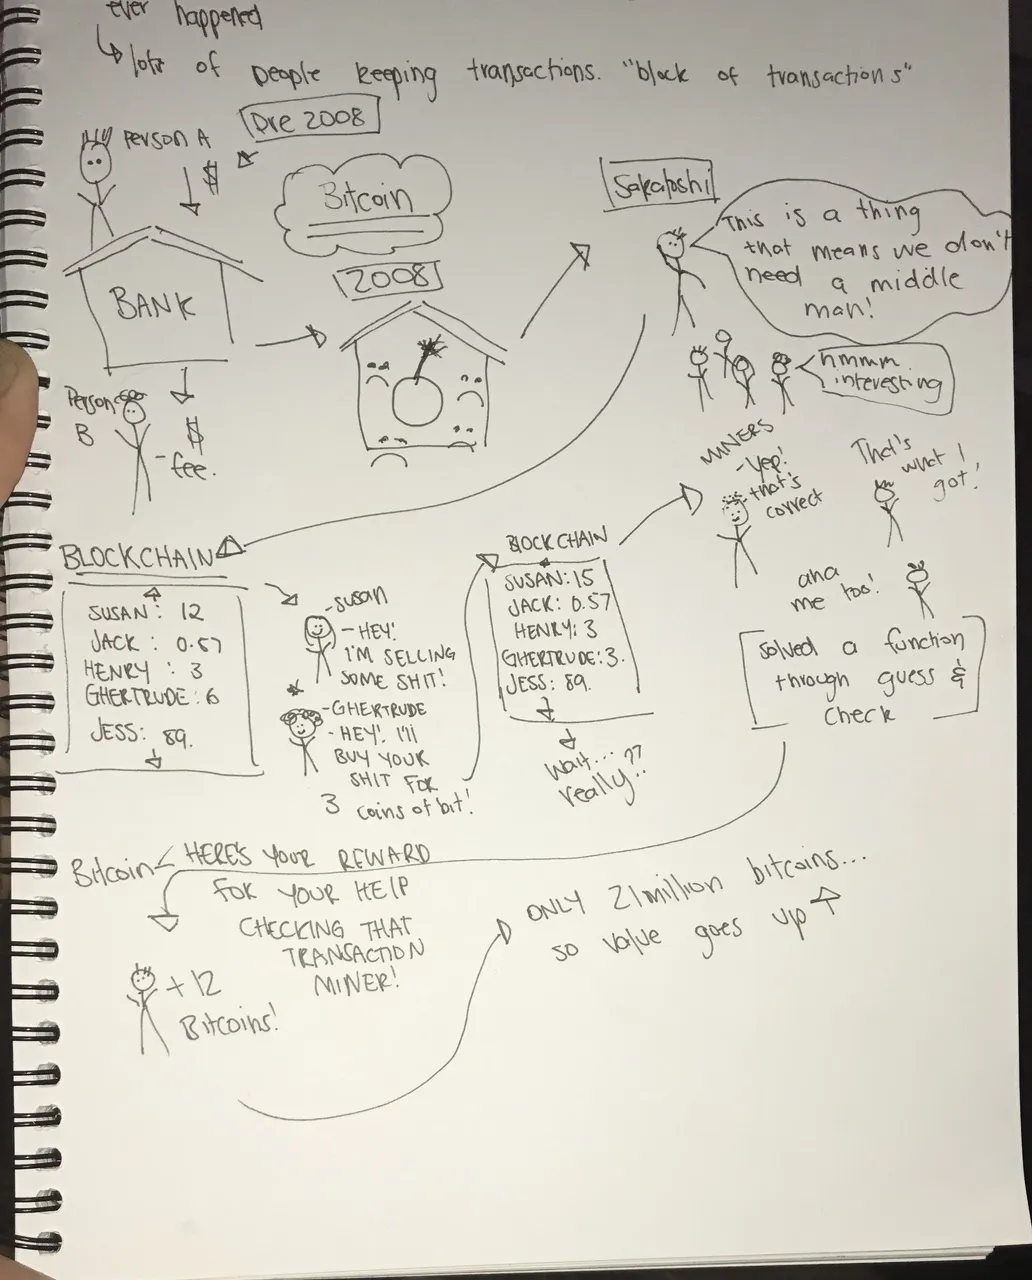 ever happened
lots of people keeping transactions. "block of transactions"
Pre 2008
Person A
$
Bitcoin
Sakatoshi
This is a thing
that means we don't
need a middle
man!
2008
BANK
hmmm.
interesting
Person
B
$
- fee.
MINERS
- Yep!
that's
correct
That's
what I
got!
aha
me too!
solved a function
through guess &
check
BLOCKCHAIN
SUSAN: 12
JACK: 0.57
HENRY: 3
GHERTRUDE: 6
JESS: 89.
- Susan
- HEY!
I'M SELLING
SOME SHIT!
- GHERTRUDE
- HEY! I'll
BUY YOUR
SHIT FOR
3 coins of bit!
BLOCKCHAIN
SUSAN: 15
JACK: 0.57
HENRY: 3
GHERTRUDE: 3.
JESS: 89.
wait... ??
really..
Bitcoin < HERE'S YOUR REWARD
FOR YOUR HELP
CHECKING THAT
TRANSACTION
MINER!
+ 12
Bitcoins!
ONLY 21 million bitcoins...
so value goes up ↑